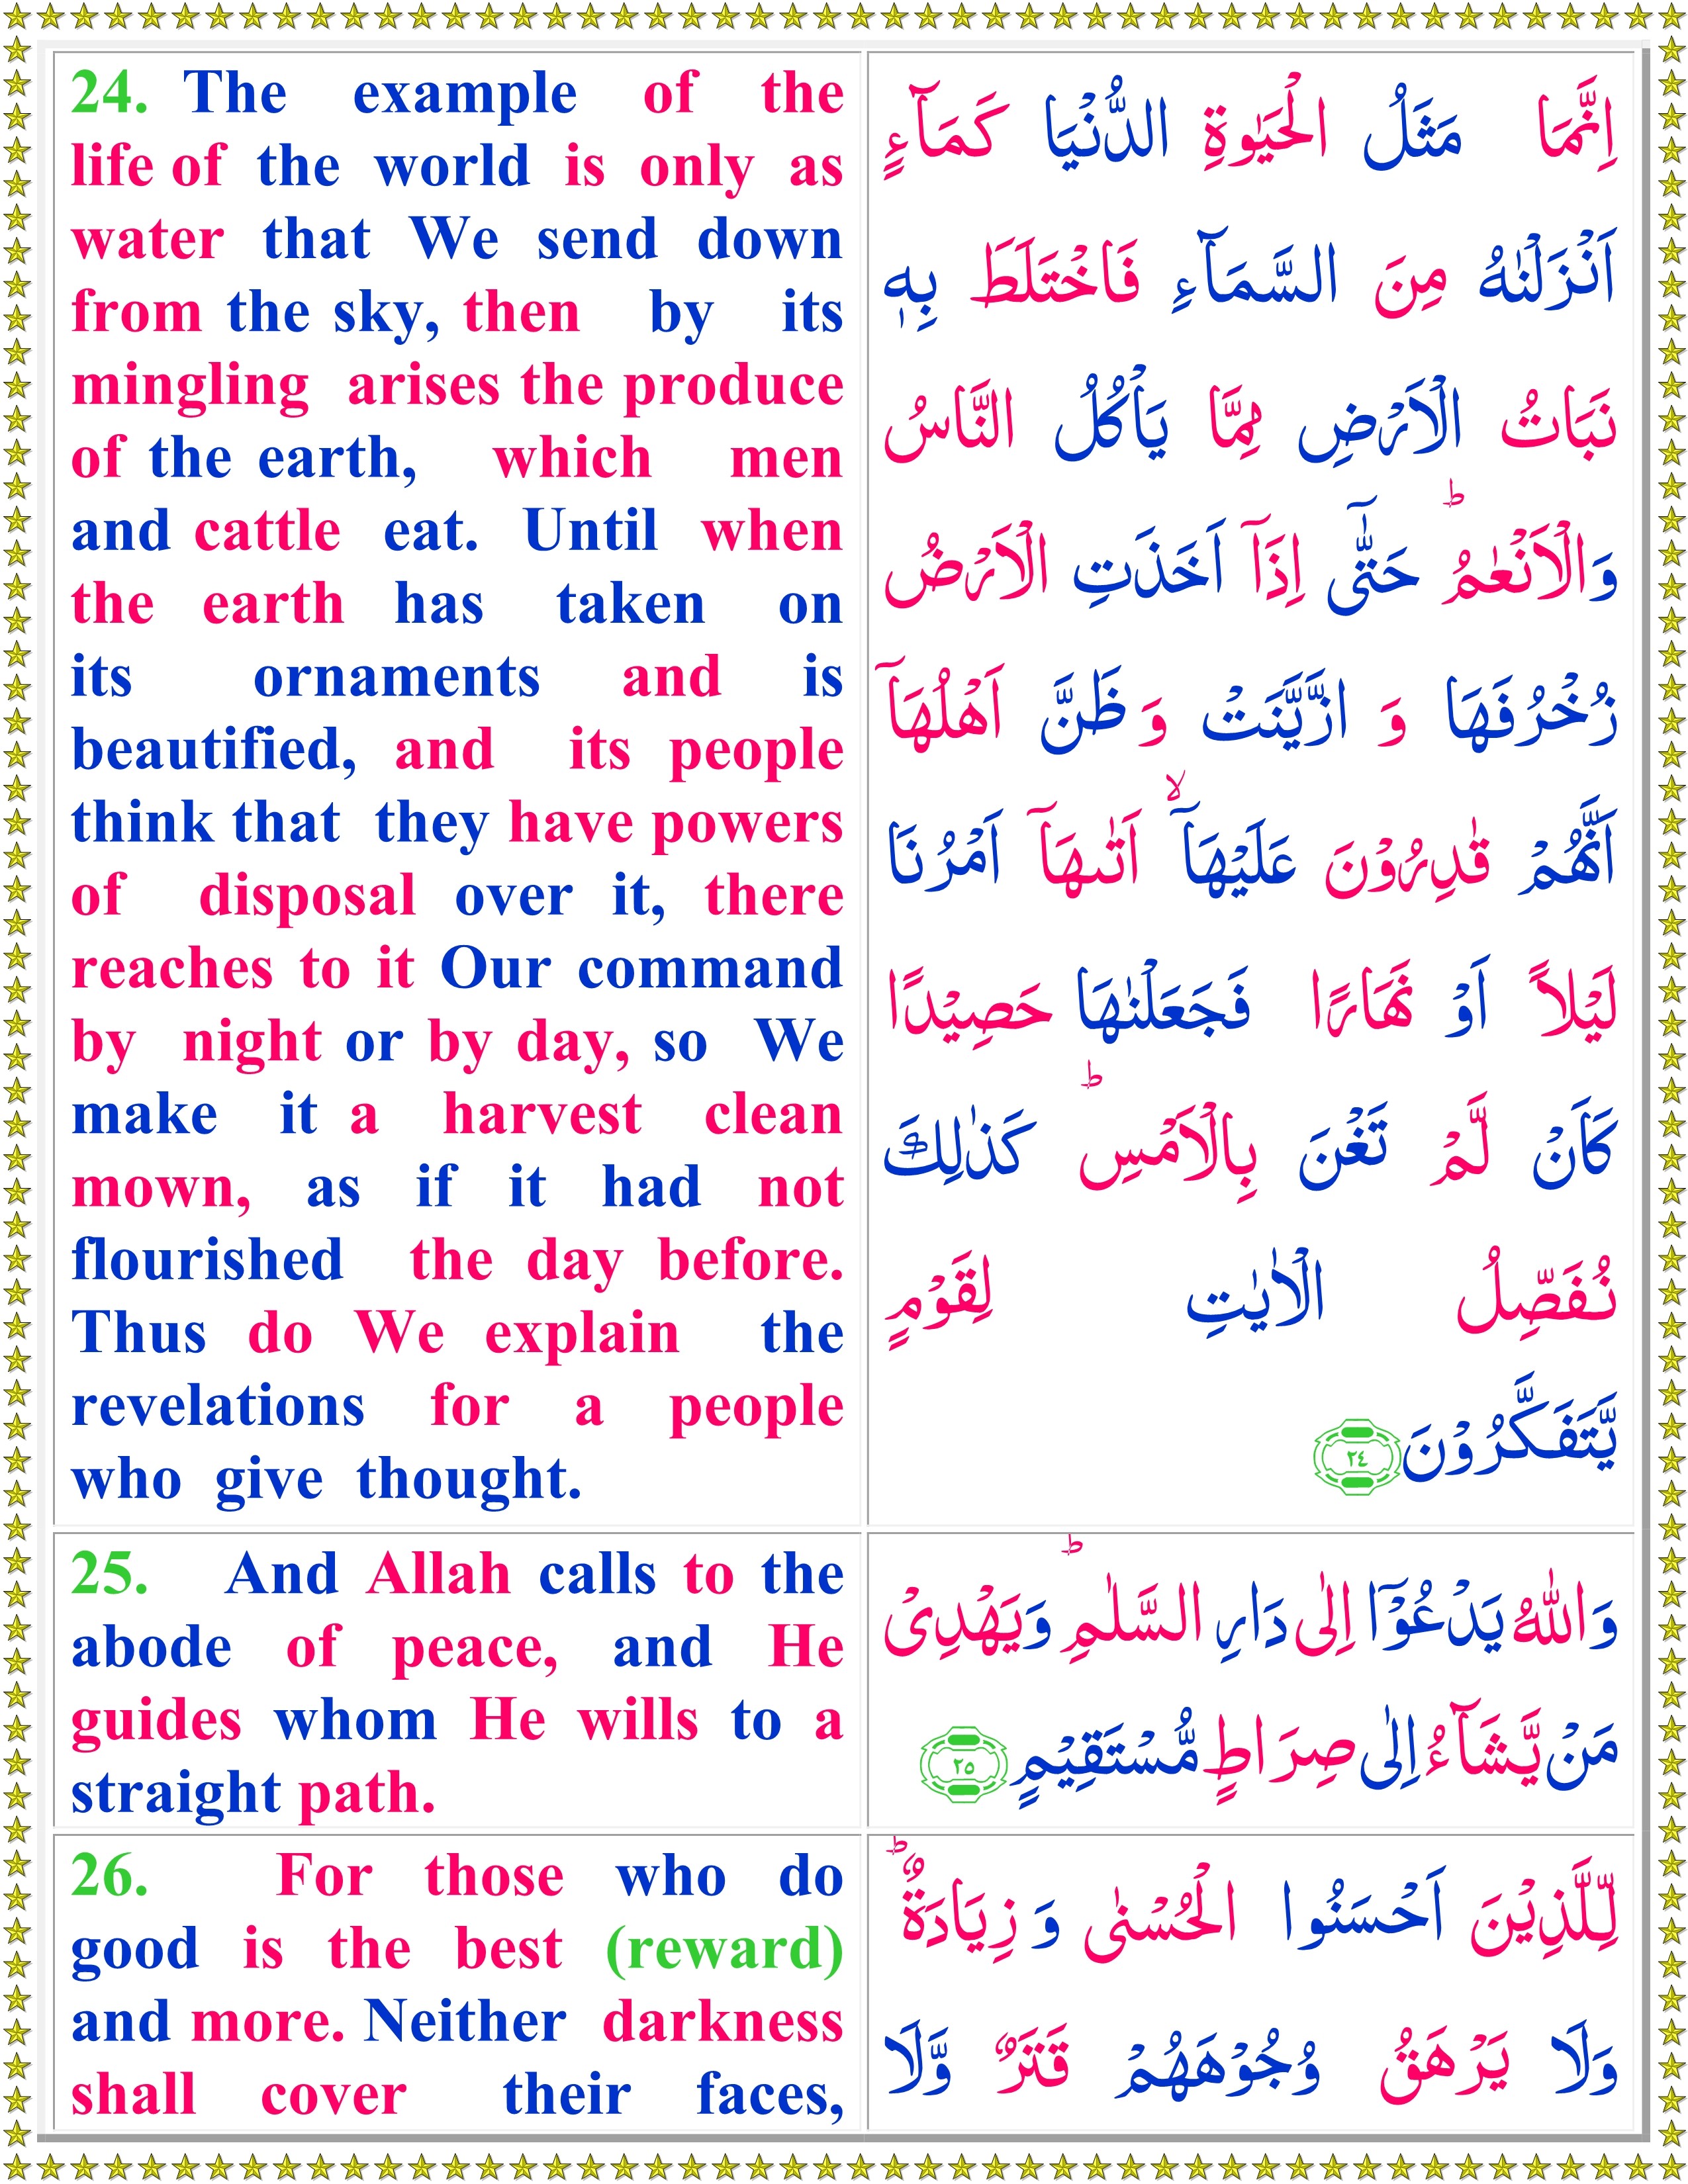 24. The example of the
life of the world is only as
water that We send down
from the sky, then by its
mingling arises the produce
of the earth, which men
and cattle eat. Until when
the earth has taken on
its ornaments and is
beautified, and its people
think that they have powers
of disposal over it, there
reaches to it Our command
by night or by day, so We
make it a harvest clean
mown, as if it had not
flourished the day before.
Thus do We explain the
revelations for a people
who give thought.
اِنَّمَا مَثَلُ الْحَيٰوةِ الدُّنْيَا كَمَآءٍ
اَنْزَلْنٰهُ مِنَ السَّمَآءِ فَاخْتَلَطَ بِهٖ
نَبَاتُ الْاَرْضِ مِمَّا يَاْكُلُ النَّاسُ
وَالْاَنْعٰمُ ؕ حَتّٰۤى اِذَاۤ اَخَذَتِ الْاَرْضُ
زُخْرُفَهَا وَ ازَّيَّنَتْ وَ ظَنَّ اَهْلُهَاۤ
اَنَّهُمْ قٰدِرُوْنَ عَلَيْهَاۤ ۙ اَتٰٮهَاۤ اَمْرُنَا
لَيْلاً اَوْ نَهَارًا فَجَعَلْنٰهَا حَصِيْدًا
كَاَنْ لَّمْ تَغْنَ بِالْاَمْسِ ؕ كَذٰلِكَ
نُفَصِّلُ الْاٰيٰتِ لِقَوْمٍ
يَّتَفَكَّرُوْنَ ٢٤
25. And Allah calls to the
abode of peace, and He
guides whom He wills to a
straight path.
وَاللّٰهُ يَدْعُوْۤا اِلٰى دَارِ السَّلٰمِ ؕ وَيَهْدِىْ
مَنْ يَّشَآءُ اِلٰى صِرَاطٍ مُّسْتَقِيْمٍ ٢٥
26. For those who do
good is the best (reward)
and more. Neither darkness
shall cover their faces,
لِلَّذِيْنَ اَحْسَنُوا الْحُسْنٰى وَ زِيَادَةٌ ؕ
وَلَا يَرْهَقُ وُجُوْهَهُمْ قَتَرٌ وَّلَا